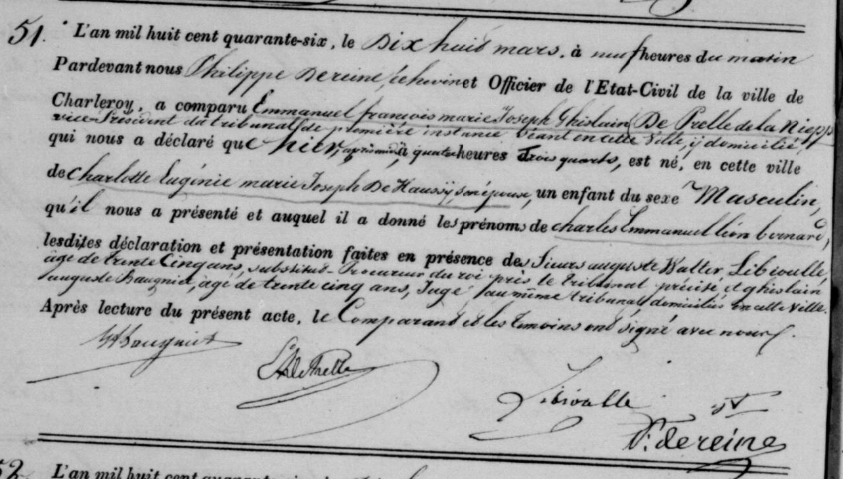 51. L'an mil huit cent quarante-six, le Dix huit mars, à neuf heures du matin
Pardevant nous Philippe Dereine, échevin et Officier de l'Etat-Civil de la ville de
Charleroy, a comparu Emmanuel françois marie Joseph Ghislain De Prelle de la Nieppe
vice Président du tribunal de première instance séant en cette ville, y domicilié,
qui nous a déclaré que hier, après midi à quatre heures Trois quarts, est né, en cette ville
de charlotte Eugénie marie Joseph De Haussy, son épouse, un enfant du sexe Masculin,
qu'il nous a présenté et auquel il a donné les prénoms de charles Emmanuel léon bernard,
lesdites déclaration et présentation faites en présence des Sieurs auguste Walter, Libioulle
âgé de trente Cinq ans, substitut Procureur du roi près le tribunal précité et ghislain
auguste Baugniet, agé de trente cinq ans, Juge au même tribunal domiciliés en cette ville.
Après lecture du présent acte, le Comparant et les temoins ont signé avec nous.
Baugniet
De Prelle
Libioulle
P. Dereine
52 L'an mil huit cent quarante-six, le